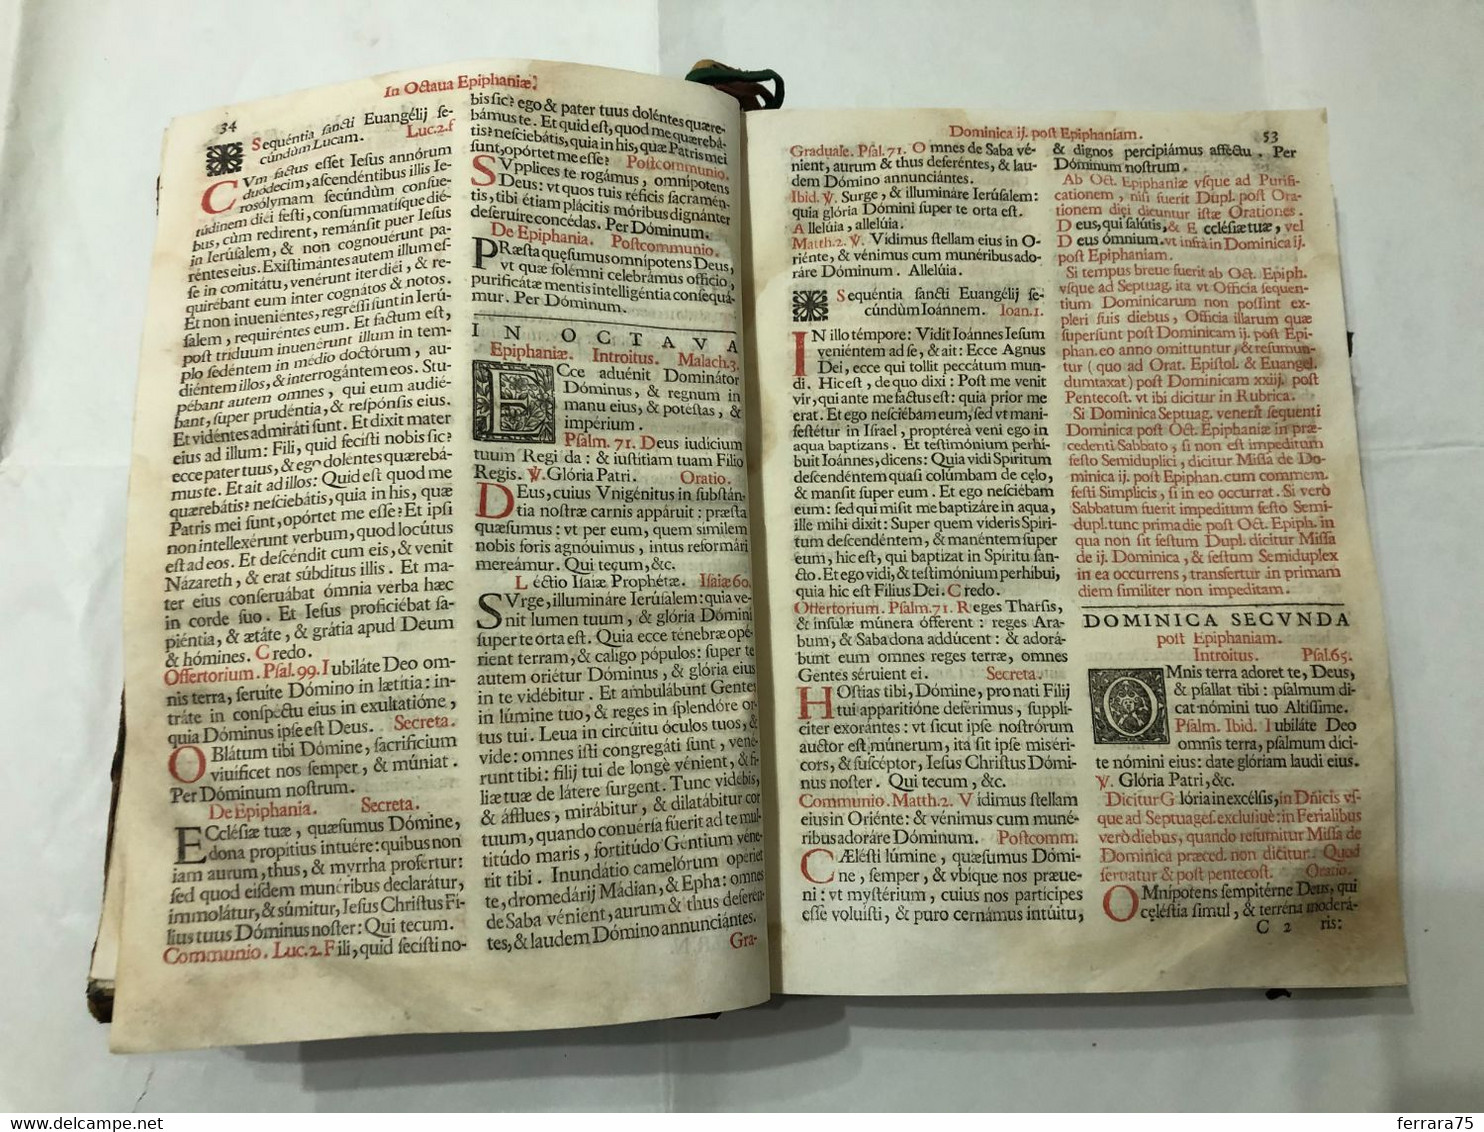 34
In Octaua Epiphaniæ.
Sequéntia sancti Euangélij se-
cúndùm Lucam. Luc.2.f
CVm factus esset Iesus annórum
duodecim, ascendéntibus illis Ie-
rosólymam secúndùm consue-
túdinem diéi festi, consummatísque dié-
bus, cùm redirent, remánsit puer Iesus
in Ierúsalem, & non cognouérunt pa-
réntes eius. Existimántes autem illum es-
se in comitátu, venérunt iter diéi, & re-
quirébant eum inter cognátos & notos.
Et non inueniéntes, regréssi sunt in Ierú-
salem, requiréntes eum. Et factum est,
post tríduum inuenérunt illum in tem-
plo sedéntem in médio doctórum, au-
diéntem illos, & interrogántem eos. Stu-
pébant autem omnes, qui eum audié-
bant, super prudéntia, & respónsis eius.
Et vidéntes admiráti sunt. Et dixit mater
eius ad illum: Fili, quid fecísti nobis sic?
ecce pater tuus, & ego doléntes quærebá-
mus te. Et ait ad illos: Quid est quod me
quærebátis? nesciebátis, quia in his, quæ
Patris mei sunt, opórtet me esse? Et ipsi
non intellexérunt verbum, quod locútus
est ad eos. Et descéndit cum eis, & venit
Názareth, & erat súbditus illis. Et ma-
ter eius conseruábat ómnia verba hæc
in corde suo. Et Iesus proficiébat sa-
piéntia, & ætáte, & grátia apud Deum
& hómines. Credo.
Offertorium. Psal.99. Iubiláte Deo om-
nis terra, seruíte Dómino in lætítia: in-
tráte in conspéctu eius in exultatióne,
quia Dóminus ipse est Deus. Secreta.
OBlátum tibi Dómine, sacrificium
viuíficet nos semper, & múniat.
Per Dóminum nostrum.
De Epiphania. Secreta.
ECclésiæ tuæ, quæsumus Dómine,
dona propítius intuére: quibus non
iam aurum, thus, & myrrha profertur:
sed quod eisdem munéribus declarátur,
immolátur, & súmitur, Iesus Christus Fí-
lius tuus Dóminus noster: Qui tecum.
Communio. Luc.2. Fili, quid fecísti no-
bis sic? ego & pater tuus doléntes quære-
bámus te. Et quid est, quod me quærebá-
tis? nesciebátis, quia in his, quæ Patris mei
sunt, opórtet me esse? Postcommunio.
SVpplices te rogámus, omnípotens
Deus: vt quos tuis réficis sacramén-
tis, tibi étiam plácitis móribus dignánter
deseruire concédas. Per Dóminum.
De Epiphania. Postcommunio.
PRæsta quesumus omnípotens Deus,
vt quæ solémni celebrámus officio,
purificátæ mentis intelligéntia consequá-
mur. Per Dóminum.
IN OCTAVA
Epiphaniæ. Introitus. Malach.3.
ECce aduénit Dominátor
Dóminus, & regnum in
manu eius, & potéstas, &
impérium.
Psalm. 71. Deus iudícium
tuum Regi da: & iustítiam tuam Fílio
Regis. ℣. Glória Patri. Oratio.
DEus, cuius Vnigénitus in substán-
tia nostræ carnis appáruit: præsta
quæsumus: vt per eum, quem símilem
nobis foris agnóuimus, intus reformári
mereámur. Qui tecum, &c.
Léctio Isaiæ Prophétæ. Isaiæ 60.
SVrge, illumináre Ierúsalem: quia ve-
nit lumen tuum, & glória Dómini
super te orta est. Quia ecce ténebræ opé-
rient terram, & calígo pópulos: super te
autem oriétur Dóminus, & glória eius
in te vidébitur. Et ambulábunt Gentes
in lúmine tuo, & reges in splendóre or-
tus tui. Leua in circúitu óculos tuos, &
vide: omnes isti congregáti sunt, vene-
runt tibi: filij tui de longè vénient, & fí-
liæ tuæ de látere surgent. Tunc vidébis,
& áfflues, mirábitur, & dilatábitur cor
tuum, quando conuersa fúerit ad te mul-
titúdo maris, fortitúdo Géntium véne-
rit tibi. Inundátio camelórum opériet
te, dromedárij Mádian, & Epha: omnes
de Saba vénient, aurum & thus deferén-
tes, & laudem Dómino annunciántes.
Gra-
Dominica ij. post Epiphaniam.
53
Graduale. Psal.71. Omnes de Saba vé-
nient, aurum & thus deferéntes, & lau-
dem Dómino annunciántes.
Ibid. ℣. Surge, & illumináre Ierúsalem:
quia glória Dómini super te orta est.
Allelúia, allelúia.
Matth.2. ℣. Vidimus stellam eius in O-
riénte, & vénimus cum munéribus ado-
ráre Dóminum. Allelúia.
Sequéntia sancti Euangélij se-
cúndùm Ioánnem. Ioan.1.
IN illo témpore: Vidit Ioánnes Iesum
veniéntem ad se, & ait: Ecce Agnus
Dei, ecce qui tollit peccátum mun-
di. Hic est, de quo dixi: Post me venit
vir, qui ante me factus est: quia prior me
erat. Et ego nesciébam eum, sed vt mani-
festétur in Israel, proptéreà veni ego in
aqua baptizans. Et testimónium perhi-
buit Ioánnes, dicens: Quia vidi Spíritum
descendéntem quasi columbam de cęlo,
& mansit super eum. Et ego nesciébam
eum: sed qui misit me baptizáre in aqua,
ille mihi dixit: Super quem víderis Spíri-
tum descendéntem, & manéntem super
eum, hic est, qui baptízat in Spíritu san-
cto. Et ego vidi, & testimónium perhíbui,
quia hic est Fílius Dei. Credo.
Offertorium. Psalm.71. Reges Tharsis,
& ínsulæ múnera ófferent: reges Ara-
bum, & Saba dona addúcent: & adorá-
bunt eum omnes reges terræ, omnes
Gentes séruient ei. Secreta.
HOstias tibi, Dómine, pro nati Fílij
tui apparitióne deferimus, súpplí-
citer exorántes: vt sicut ipse nostrórum
auctor est múnerum, ita sit ipse miséri-
cors, & suscéptor, Iesus Christus Dómi-
nus noster. Qui tecum, &c.
Communio. Matth.2. Vidimus stellam
eius in Oriénte: & vénimus cum muné-
ribus adoráre Dóminum. Postcomm.
CÆlésti lúmine, quæsumus Dómi-
ne, semper, & vbique nos præue-
ni: vt mystérium, cuius nos partícipes
esse voluísti, & puro cernámus intúitu,
& dignos percipiámus afféctu. Per
Dóminum nostrum.
Ab Oct. Epiphaniæ vsque ad Purifi-
cationem, nisi fuerit Dupl. post Ora-
tionem diei dicuntur istæ Orationes.
Deus, qui salútis, & Ecclésiæ tuæ, vel
Deus ómnium. vt infrà in Dominica ij.
post Epiphaniam.
Si tempus breue fuerit ab Oct. Epiph.
vsque ad Septuag. ita vt Officia sequen-
tium Dominicarum non possint ex-
pleri suis diebus, Officia illarum quæ
supersunt post Dominicam ij. post Epi-
phan. eo anno omittuntur, & resumun-
tur (quo ad Orat. Epistol. & Euangel.
dumtaxat) post Dominicam xxiij. post
Pentecost. vt ibi dicitur in Rubrica.
Si Dominica Septuag. venerit sequenti
Dominica post Oct. Epiphaniæ in præ-
cedenti Sabbato, si non est impeditum
festo Semiduplici, dicitur Missa de Do-
minica ij. post Epiphan. cum commem.
festi Simplicis, si in eo occurrat. Si verò
Sabbatum fuerit impeditum festo Semi-
dupl. tunc prima die post Oct. Epiph. in
qua non sit festum Dupl. dicitur Missa
de ij. Dominica, & festum Semiduplex
in ea occurrens, transfertur in primam
diem similiter non impeditam.
DOMINICA SECVNDA
post Epiphaniam.
Introitus. Psal.65.
OMnis terra adoret te, Deus,
& psallat tibi: psalmum di-
cat nómini tuo Altíssime.
Psalm. Ibid. Iubiláte Deo
omnis terra, psalmum díci-
te nómini eius: date glóriam laudi eius.
℣. Glória Patri, &c.
Dicitur Glória in excélsis, in Dñicis vs-
que ad Septuages. exclusiuè: in Ferialibus
verò diebus, quando resumitur Missa de
Dominica præced. non dicitur. Quod
seruatur & post pentecost. Oratio.
OMnípotens sempitérne Deus, qui
cęléstia simul, & terréna moderá-
C 2 ris:
delcampe.net
ferrara75